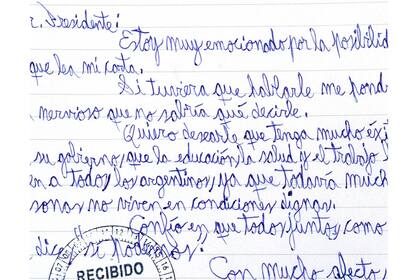 r. Presidente:
Estoy muy emocionado por la posibilid
que lea mi carta.
Si tuviera que hablarle me pond
nervioso que no sabría qué decirle.
Quiero desearle que tenga mucho éxi
su gobierno, que la educación la salud y el trabajo
en a todos los argentinos, ya que todavía much
sonas no viven en condiciones dignas.
Confío en que todos juntos, como
dice "si podemos".
RECIBIDO
Con mucho afecto,